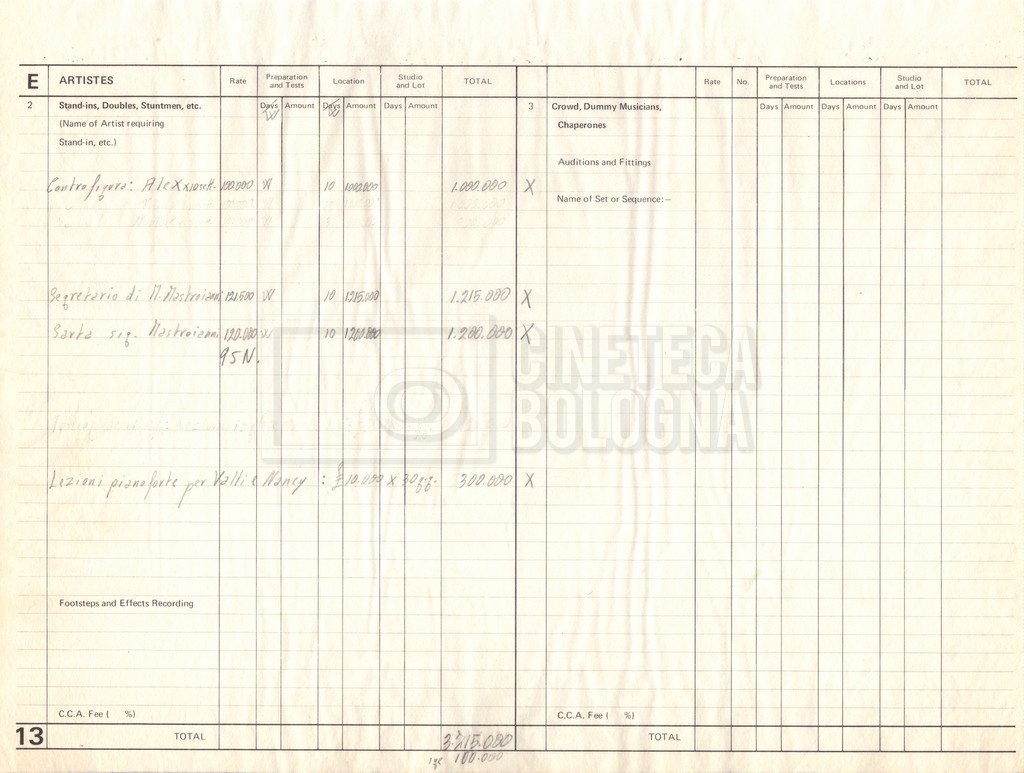 E ARTISTES Rate Preparation and Tests Location Studio and Lot TOTAL Rate No. Preparation and Tests Locations Studio and Lot TOTAL
2 Stand-ins, Doubles, Stuntmen, etc. Days Amount Days Amount Days Amount 3 Crowd, Dummy Musicians, Days Amount Days Amount Days Amount
W W
(Name of Artist requiring Chaperones
Stand-in, etc.)
Auditions and Fittings
Controfigura: 100.000 W 10 1000.000 1.000.000 X
Name of Set or Sequence:–
Segretario di M. Mastroianni 121.500 W 10 1215.000 1.215.000 X
Sarta sig. Mastroianni 120.000 W 10 1200.000 1.200.000 X
95N.
CINETECA
BOLOGNA
Lezioni pianoforte per Valli e Nancy : £ 10.000 x 30 gg. 300.000 X
Footsteps and Effects Recording
C.C.A. Fee ( %) C.C.A. Fee ( %)
13 TOTAL 3.715.000 TOTAL
100.000